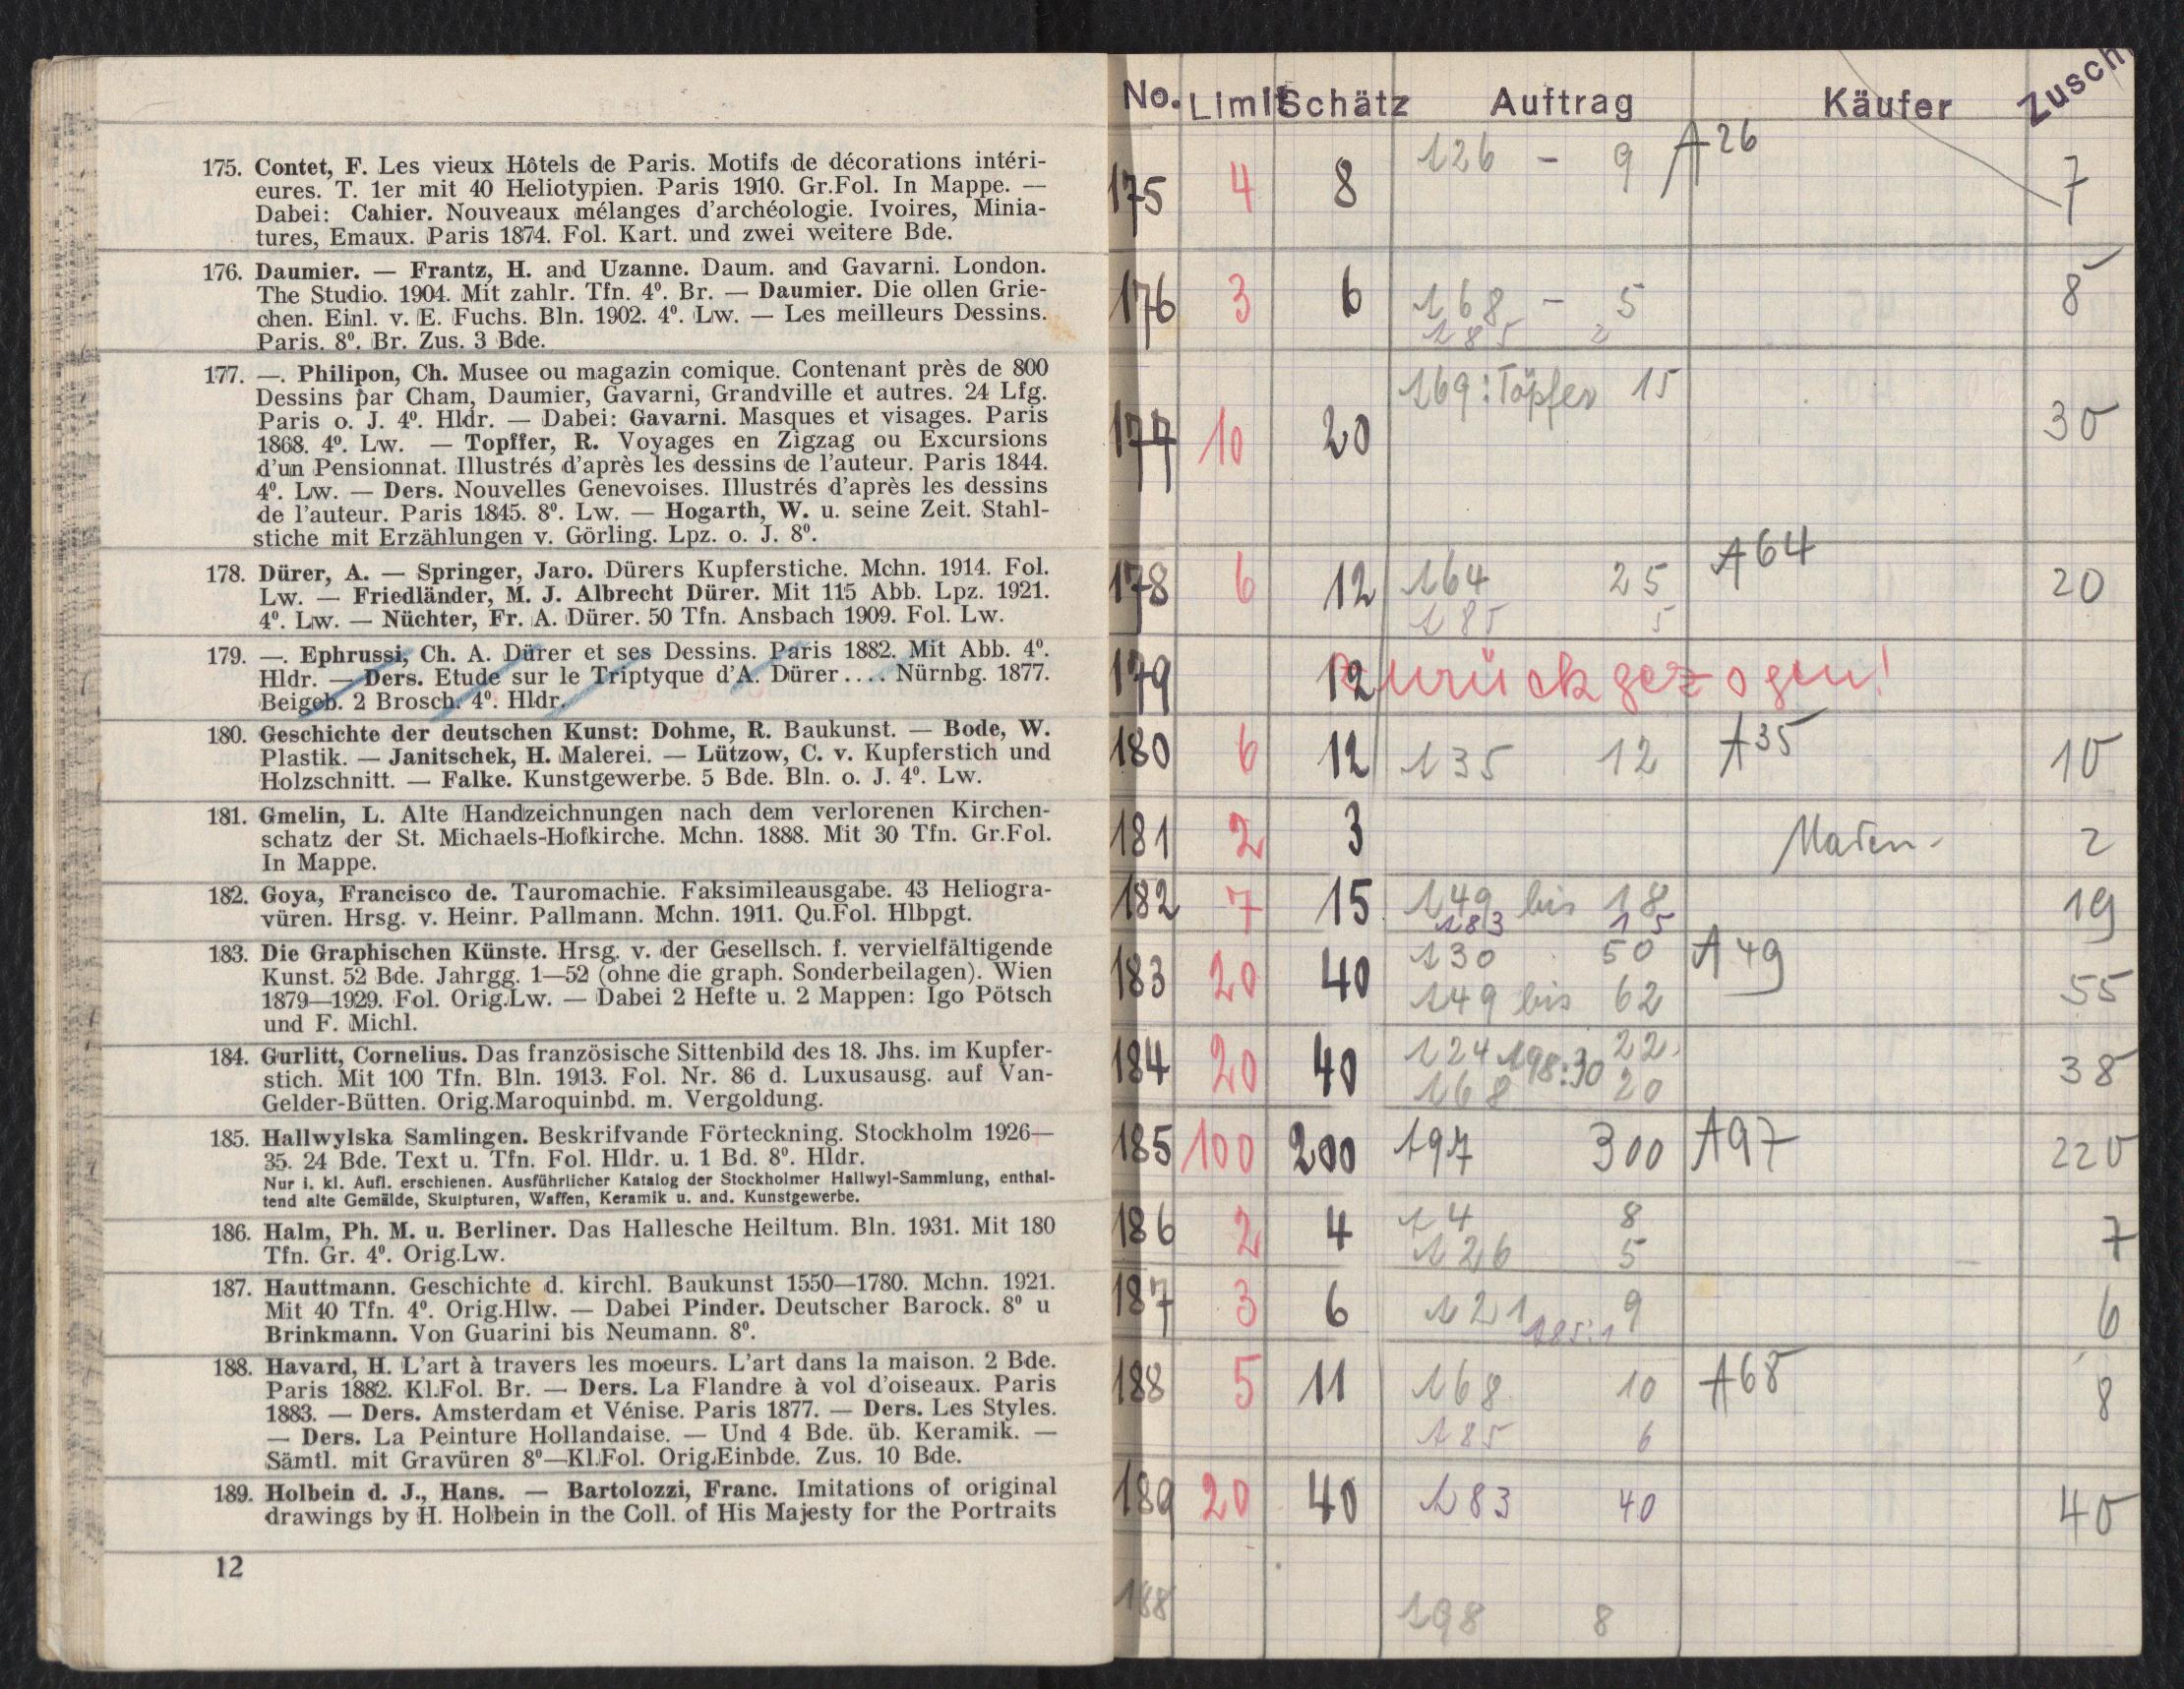 175. Contet, F. Les vieux Hôtels de Paris. Motifs de décorations intéri-
eures. T. 1er mit 40 Heliotypien. Paris 1910. Gr.Fol. In Mappe. —
Dabei: Cahier. Nouveaux mélanges d'archéologie. Ivoires, Minia-
tures, Emaux. Paris 1874. Fol. Kart. und zwei weitere Bde.
176. Daumier. — Frantz, H. and Uzanne. Daum. and Gavarni. London.
The Studio. 1904. Mit zahlr. Tfn. 4⁰. Br. — Daumier. Die ollen Grie-
chen. Einl. v. E. Fuchs. Bln. 1902. 4⁰. Lw. — Les meilleurs Dessins.
Paris. 8⁰. Br. Zus. 3 Bde.
177. —. Philipon, Ch. Musee ou magazin comique. Contenant près de 800
Dessins par Cham, Daumier, Gavarni, Grandville et autres. 24 Lfg.
Paris o. J. 4⁰. Hldr. — Dabei: Gavarni. Masques et visages. Paris
1868. 4⁰. Lw. — Topffer, R. Voyages en Zigzag ou Excursions
d'un Pensionnat. Illustrés d'après les dessins de l'auteur. Paris 1844.
4⁰. Lw. — Ders. Nouvelles Genevoises. Illustrés d'après les dessins
de l'auteur. Paris 1845. 8⁰. Lw. — Hogarth, W. u. seine Zeit. Stahl-
stiche mit Erzählungen v. Görling. Lpz. o. J. 8⁰.
178. Dürer, A. — Springer, Jaro. Dürers Kupferstiche. Mchn. 1914. Fol.
Lw. — Friedländer, M. J. Albrecht Dürer. Mit 115 Abb. Lpz. 1921.
4⁰. Lw. — Nüchter, Fr. A. Dürer. 50 Tfn. Ansbach 1909. Fol. Lw.
179. —. Ephrussi, Ch. A. Dürer et ses Dessins. Paris 1882. Mit Abb. 4⁰.
Hldr. — Ders. Etude sur le Triptyque d'A. Dürer.... Nürnbg. 1877.
Beigeb. 2 Brosch. 4⁰. Hldr.
180. Geschichte der deutschen Kunst: Dohme, R. Baukunst. — Bode, W.
Plastik. — Janitschek, H. Malerei. — Lützow, C. v. Kupferstich und
Holzschnitt. — Falke. Kunstgewerbe. 5 Bde. Bln. o. J. 4⁰. Lw.
181. Gmelin, L. Alte Handzeichnungen nach dem verlorenen Kirchen-
schatz der St. Michaels-Hofkirche. Mchn. 1888. Mit 30 Tfn. Gr.Fol.
In Mappe.
182. Goya, Francisco de. Tauromachie. Faksimileausgabe. 43 Heliogra-
vüren. Hrsg. v. Heinr. Pallmann. Mchn. 1911. Qu.Fol. Hlbpgt.
183. Die Graphischen Künste. Hrsg. v. der Gesellsch. f. vervielfältigende
Kunst. 52 Bde. Jahrgg. 1—52 (ohne die graph. Sonderbeilagen). Wien
1879—1929. Fol. Orig.Lw. — Dabei 2 Hefte u. 2 Mappen: Igo Pötsch
und F. Michl.
184. Gurlitt, Cornelius. Das französische Sittenbild des 18. Jhs. im Kupfer-
stich. Mit 100 Tfn. Bln. 1913. Fol. Nr. 86 d. Luxusausg. auf Van-
Gelder-Bütten. Orig.Maroquinbd. m. Vergoldung.
185. Hallwylska Samlingen. Beskrifvande Förteckning. Stockholm 1926—
35. 24 Bde. Text u. Tfn. Fol. Hldr. u. 1 Bd. 8⁰. Hldr.
Nur i. kl. Aufl. erschienen. Ausführlicher Katalog der Stockholmer Hallwyl-Sammlung, enthal-
tend alte Gemälde, Skulpturen, Waffen, Keramik u. and. Kunstgewerbe.
186. Halm, Ph. M. u. Berliner. Das Hallesche Heiltum. Bln. 1931. Mit 180
Tfn. Gr. 4⁰. Orig.Lw.
187. Hauttmann. Geschichte d. kirchl. Baukunst 1550—1780. Mchn. 1921.
Mit 40 Tfn. 4⁰. Orig.Hlw. — Dabei Pinder. Deutscher Barock. 8⁰ u
Brinkmann. Von Guarini bis Neumann. 8⁰.
188. Havard, H. L'art à travers les moeurs. L'art dans la maison. 2 Bde.
Paris 1882. Kl.Fol. Br. — Ders. La Flandre à vol d'oiseaux. Paris
1883. — Ders. Amsterdam et Vénise. Paris 1877. — Ders. Les Styles.
— Ders. La Peinture Hollandaise. — Und 4 Bde. üb. Keramik. —
Sämtl. mit Gravüren 8⁰—Kl.Fol. Orig.Einbde. Zus. 10 Bde.
189. Holbein d. J., Hans. — Bartolozzi, Franc. Imitations of original
drawings by H. Holbein in the Coll. of His Majesty for the Portraits
12
No. Limit Schätz Auftrag Käufer Zusch
175 4 8 126 - 9 A26 7
176 3 6 168 - 5 8
185 2
177 10 20 169: Töpfer 15 30
178 6 12 164 25 A64 20
185 5
179 12 zurückgezogen!
180 6 12 135 12 A35 10
181 2 3 2
182 7 15 149 bis 18 19
183 15
183 20 40 130 50 A49 55
149 bis 62
184 20 40 124 22 38
198:30
168 20
185 100 200 197 300 A97 220
186 2 4 14 8 7
126 5
187 3 6 121 9 6
185:1
188 5 11 168 10 A68 8
185 6
189 20 40 183 40 40
188 198 8